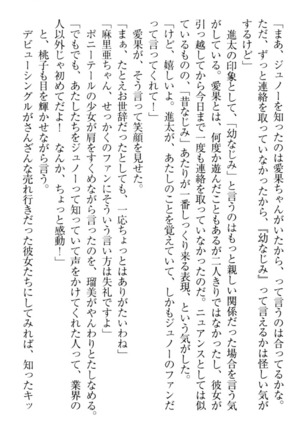 「まあ、ジュノーを知ったのは愛果ちゃんがいたから、って言うのは合ってるかな。
ただ、ずっと連絡を取っていなかったから、『幼なじみ』って言えるかは怪しい気が
するけど」
進太の印象として、「幼なじみ」と言うのはもっと親しい関係だった場合を言う気
がしている。愛果とは、何度か遊んだこともあるが二人きりではなかったし、彼女が
引っ越してから今日まで一度も連絡を取っていなかったのだ。ニュアンスとしては似
ているものの、「昔なじみ」あたりが一番しっくり来る表現、という気がした。
「けど、嬉しいよ。進太が、あたしのことを覚えていて、しかもジュノーのファンだ
って言ってくれて!」
愛果が、そう言って笑顔を見せた。
「まぁ、たとえお世辞だったとしても、一応ちょっとはありがたいわね」
「麻里亜ちゃん、せっかくのファンにそういう言い方は失礼ですよ」
ポニーテールの少女が肩をすくめながら言ったのを、瑠美がやんわりとたしなめる。
「でもでも、あたしたちをジュノーって知っていて声をかけてくれた人って、業界の
人以外じゃ初めてだよ! なんか、ちょっと感動!」
と、桃子も目を輝かせながら言う。
デビューシングルがさんざんな売れ行きだった彼女たちにしてみれば、知ったキッ